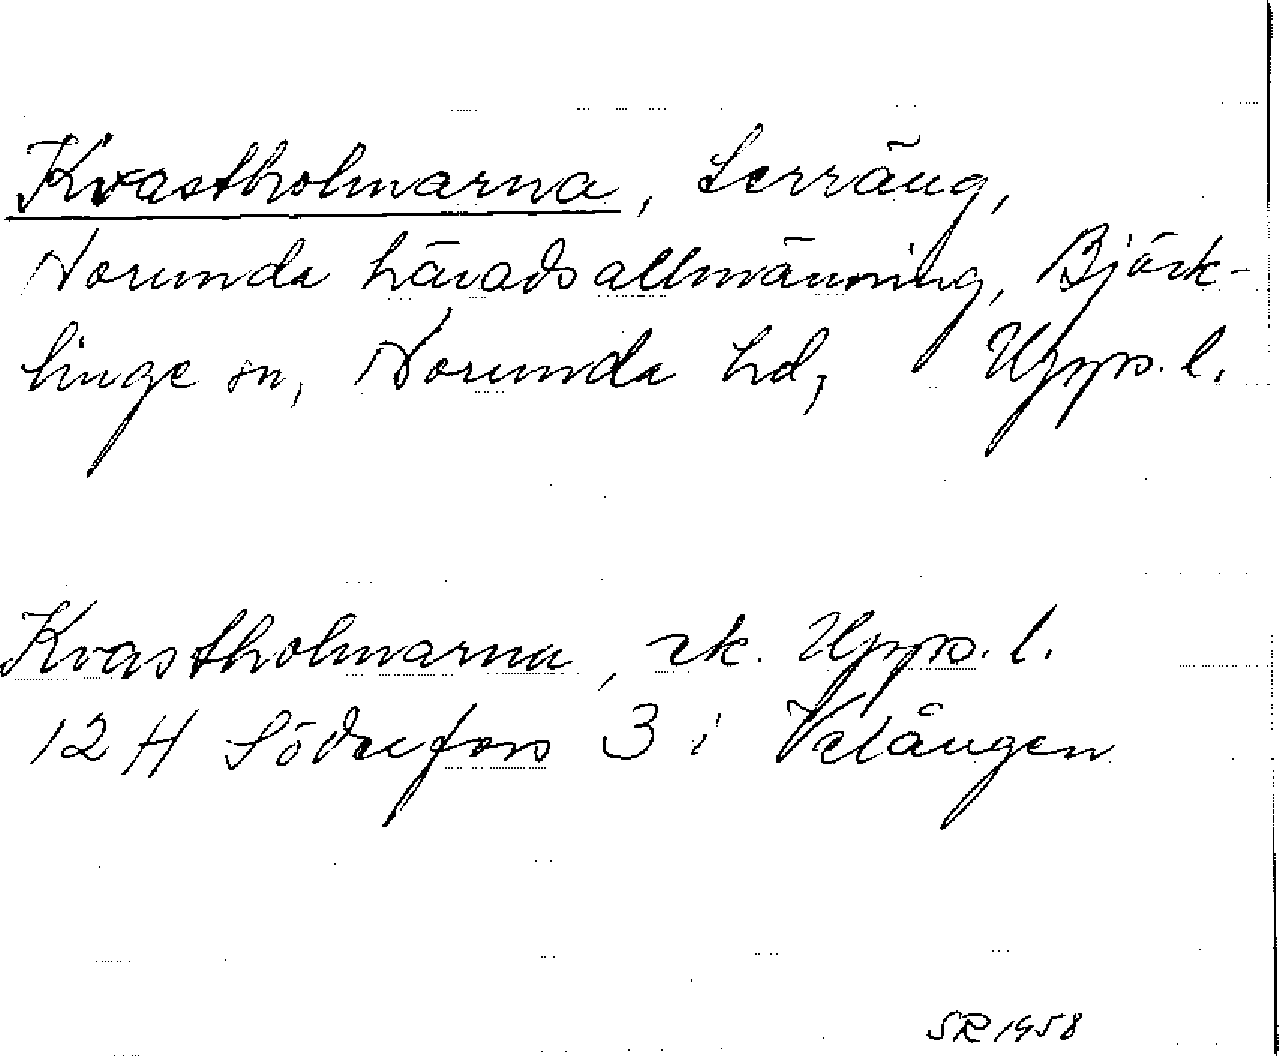 Kvastholmarna, terräng,
Norunda häradsallmänning, Björk-
linge sn, Norunda hd, Upps. l.
Kvastholmarna, ek. Upps. l.
12 H Söderfors 3 i Vetången
SR 1958